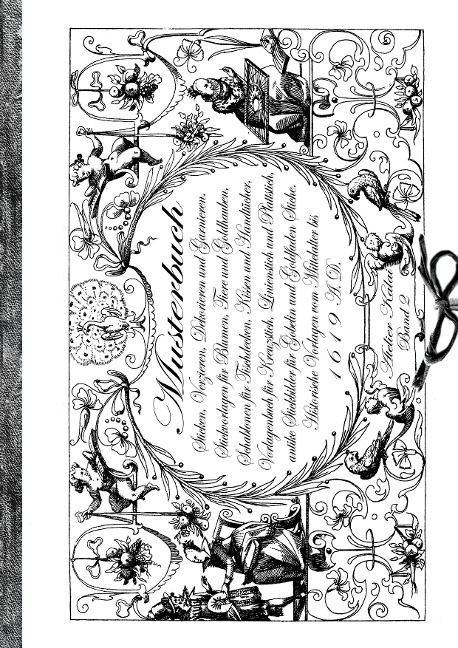 Musterbuch
Sticken, Verzieren, Dekorieren und Garnieren.
Stickvorlagen für Blumen, Tiere und Goldhauben,
Schablonen für Tischdecken, Kissen und Handtücher,
Vorlagenbuch für Kreuzstich, Linienstich und Plattstich,
antike Stickbilder für Gobelin und Goldfaden Sticke.
Historische Vorlagen vom Mittelalter bis
1619 A.D.
Atelier Kaluder
Band 2